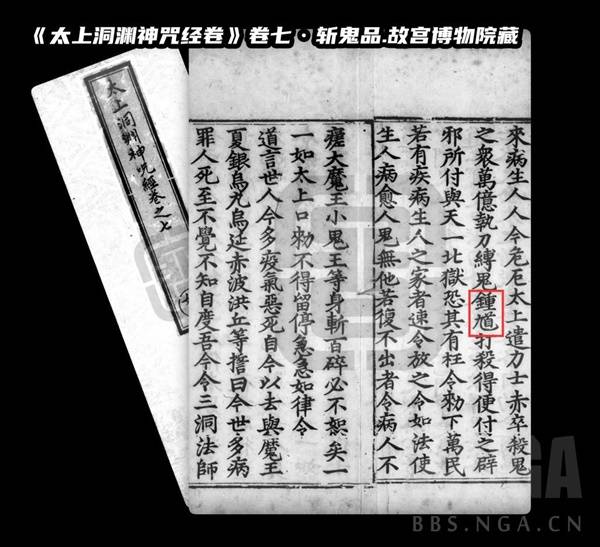 《太上洞渊神咒经卷》卷七·斩鬼品.故宫博物院藏
太上洞淵神咒經卷之七
來病生人人今危厄太上遣力士赤卒殺鬼
之衆萬億執刀縛鬼鍾馗打殺得便付之辟
邪所付與天一北獄恐其有枉令勑下萬民
若有疾病生人之家者速令放之令如法使
生人病愈人鬼無他若復不出者令病人不
瘥大魔王小鬼王等身斬百碎必不恕矣一
一如太上口勑不得留停急急如律令
道言世人今多疫氣惡死自今以去與魔王
夏銀烏丸烏延赤波洪丘等誓曰今世多病
罪人死至不覺不知自度吾今令三洞法師
NGA
BBS.NGA.CN